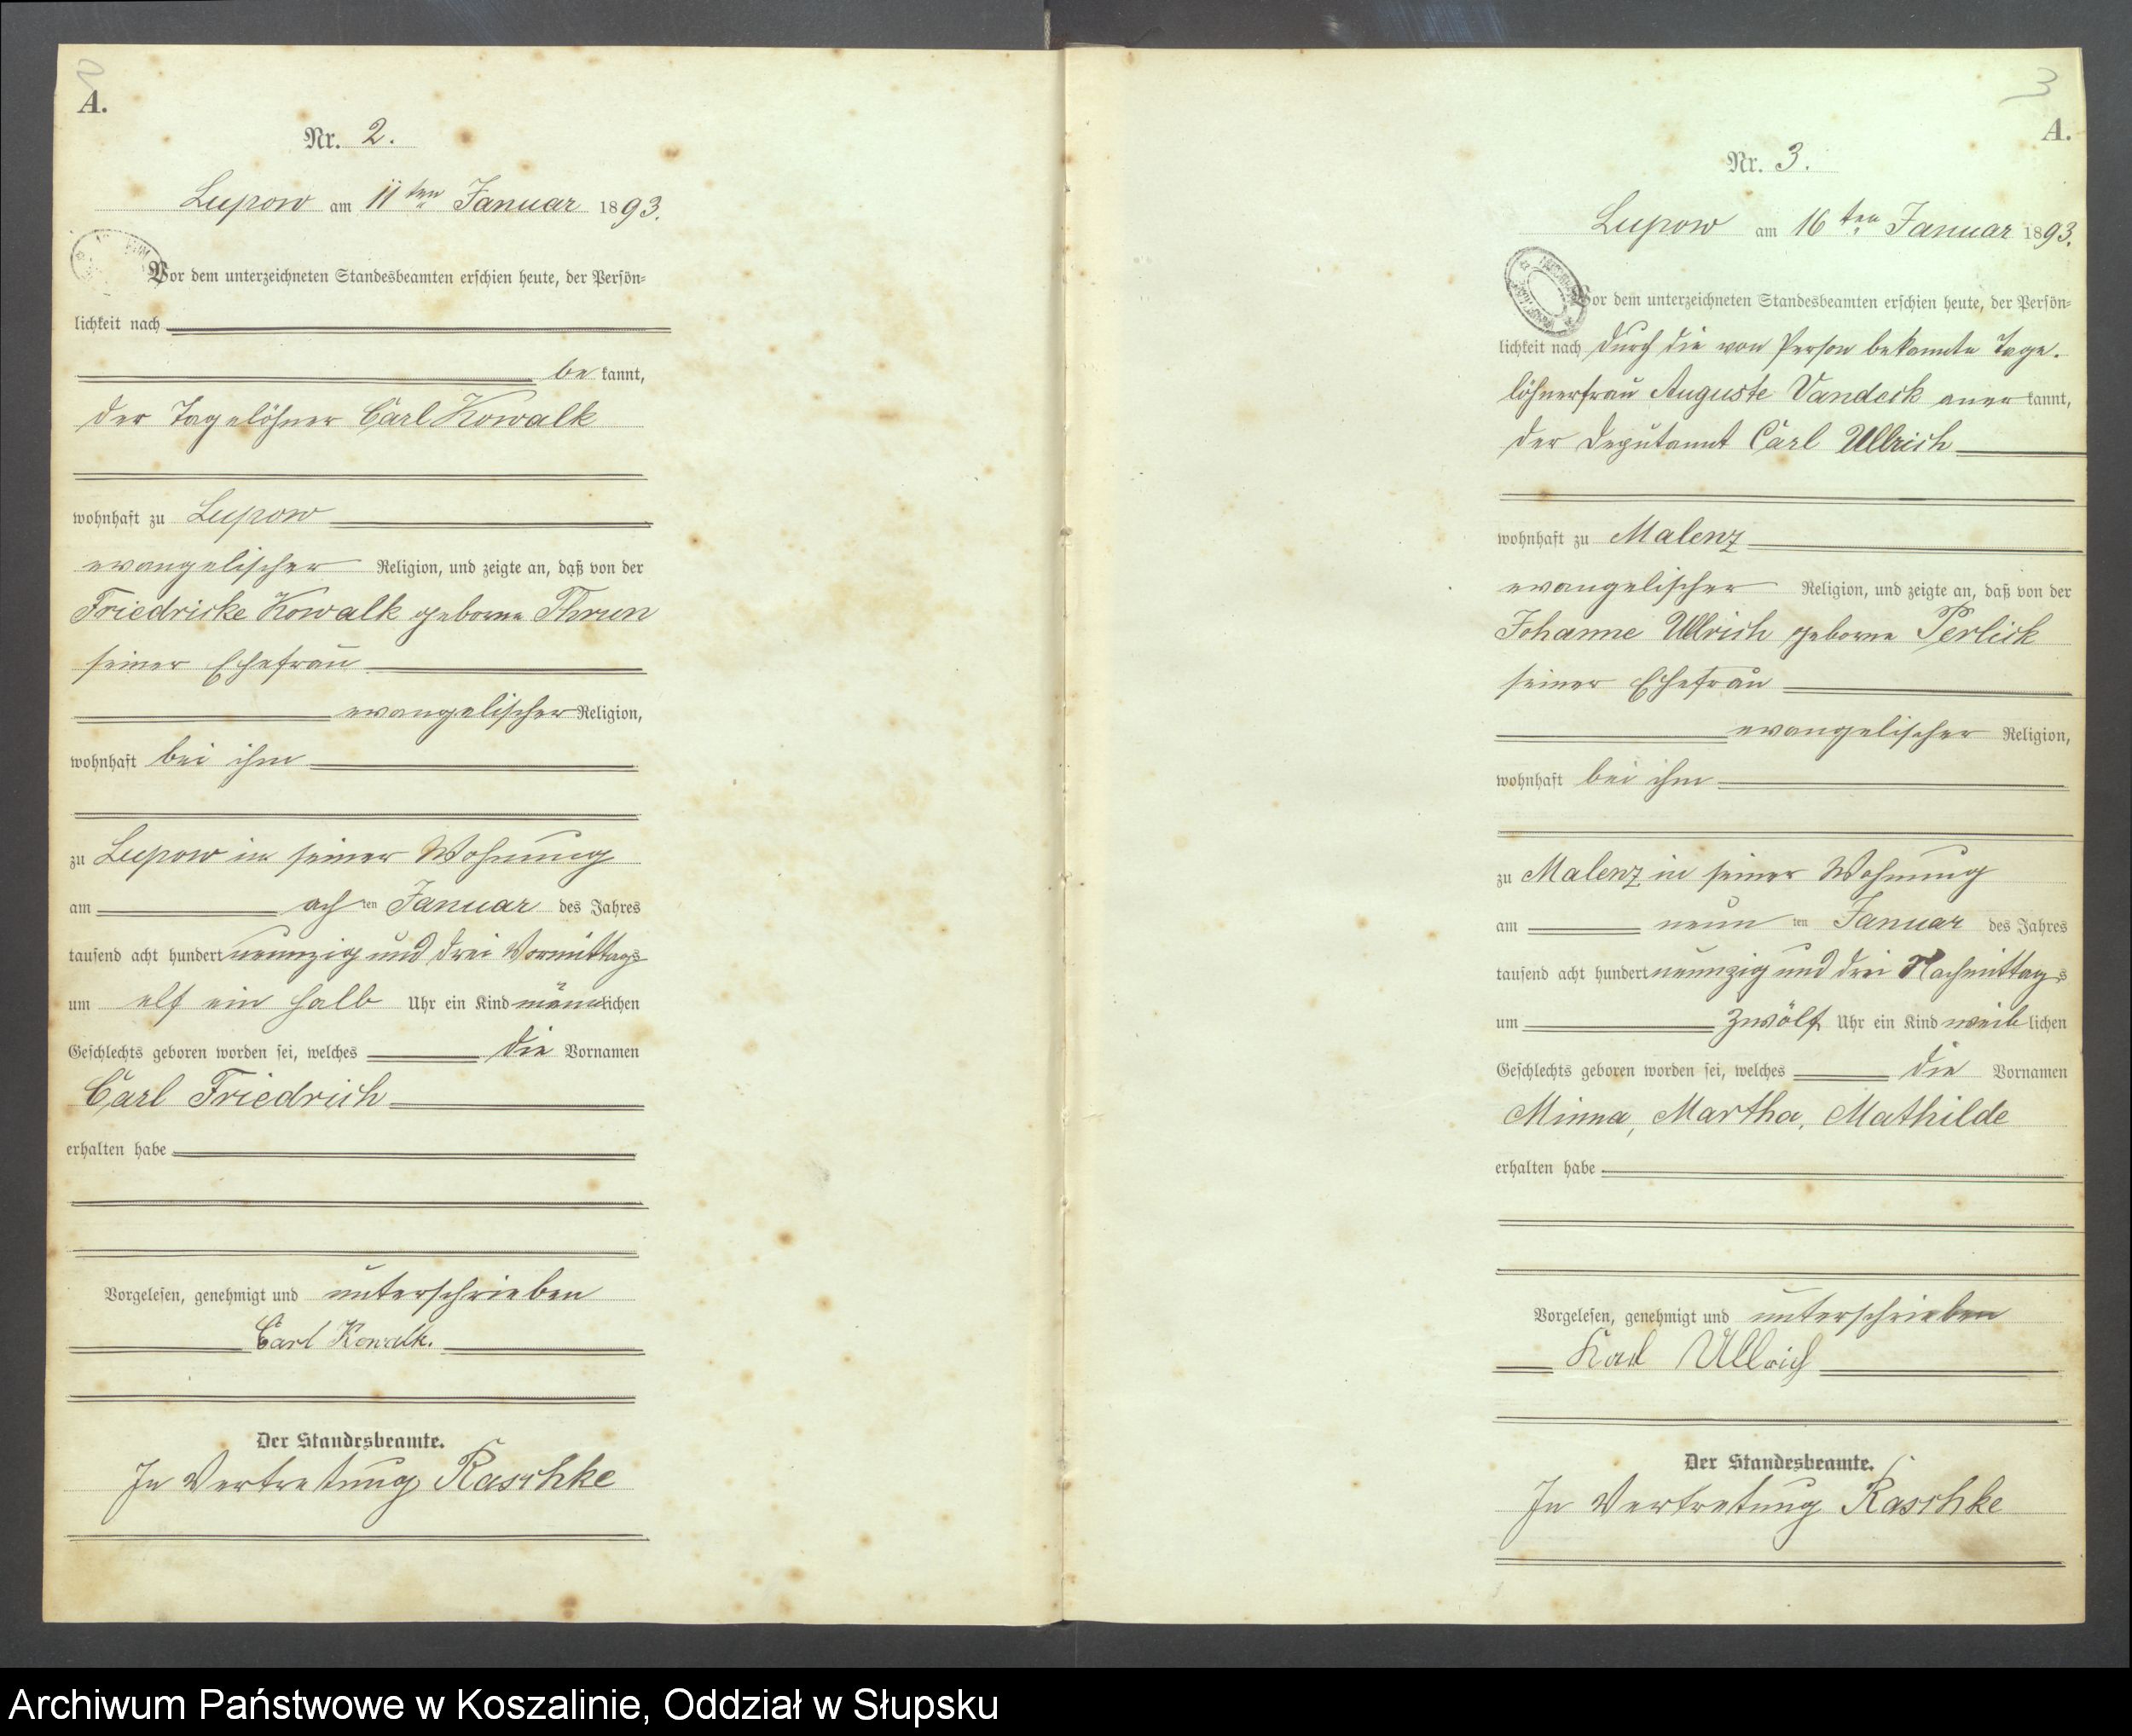 2
A.
Nr. 2.
Lupow am 11ten Januar 1893.
Vor dem unterzeichneten Standesbeamten erschien heute, der Persön-
lichkeit nach
be kannt,
der Tagelöhner Carl Kowalk
wohnhaft zu Lupow
evangelischer Religion, und zeigte an, daß von der
Friedricke Kowalk geborne Thrun
seiner Ehefrau
evangelischer Religion,
wohnhaft bei ihm
zu Lupow in seiner Wohnung
am achten Januar des Jahres
tausend acht hundert neunzig und drei Vormittags
um elf ein halb Uhr ein Kind männlichen
Geschlechts geboren worden sei, welches die Vornamen
Carl Friedrich
erhalten habe
Vorgelesen, genehmigt und unterschrieben
Carl Kowalk.
Der Standesbeamte.
In Vertretung Raschke
3
A.
Nr. 3.
Lupow am 16ten Januar 1893.
Vor dem unterzeichneten Standesbeamten erschien heute, der Persön-
lichkeit nach durch die von Person bekannte Tage-
löhnerfrau Auguste Vandeck aner kannt,
der Deputannt Carl Ullrich
wohnhaft zu Malenz
evangelischer Religion, und zeigte an, daß von der
Johanne Ullrich geborne Perlick
seiner Ehefrau
evangelischer Religion,
wohnhaft bei ihm
zu Malenz in seiner Wohnung
am neunten Januar des Jahres
tausend acht hundert neunzig und drei Nachmittags
um zwölf Uhr ein Kind weiblichen
Geschlechts geboren worden sei, welches die Vornamen
Minna, Martha, Mathilde
erhalten habe
Vorgelesen, genehmigt und unterschrieben
Karl Ullrich
Der Standesbeamte.
In Vertretung Raschke
Archiwum Państwowe w Koszalinie, Oddział w Słupsku